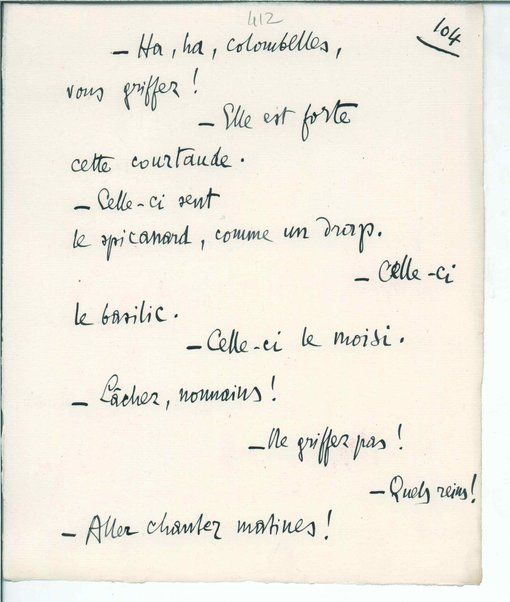 412
104
— Ha, ha, colombelles,
vous griffez !
— Elle est forte
cette courtaude.
— Celle-ci sent
le spicanard, comme un drap.
— Celle-ci
le basilic.
— Celle-ci le moisi.
— Lâchez, nonnains !
— Ne griffez pas !
— Quels reins !
— Allez chanter matines !